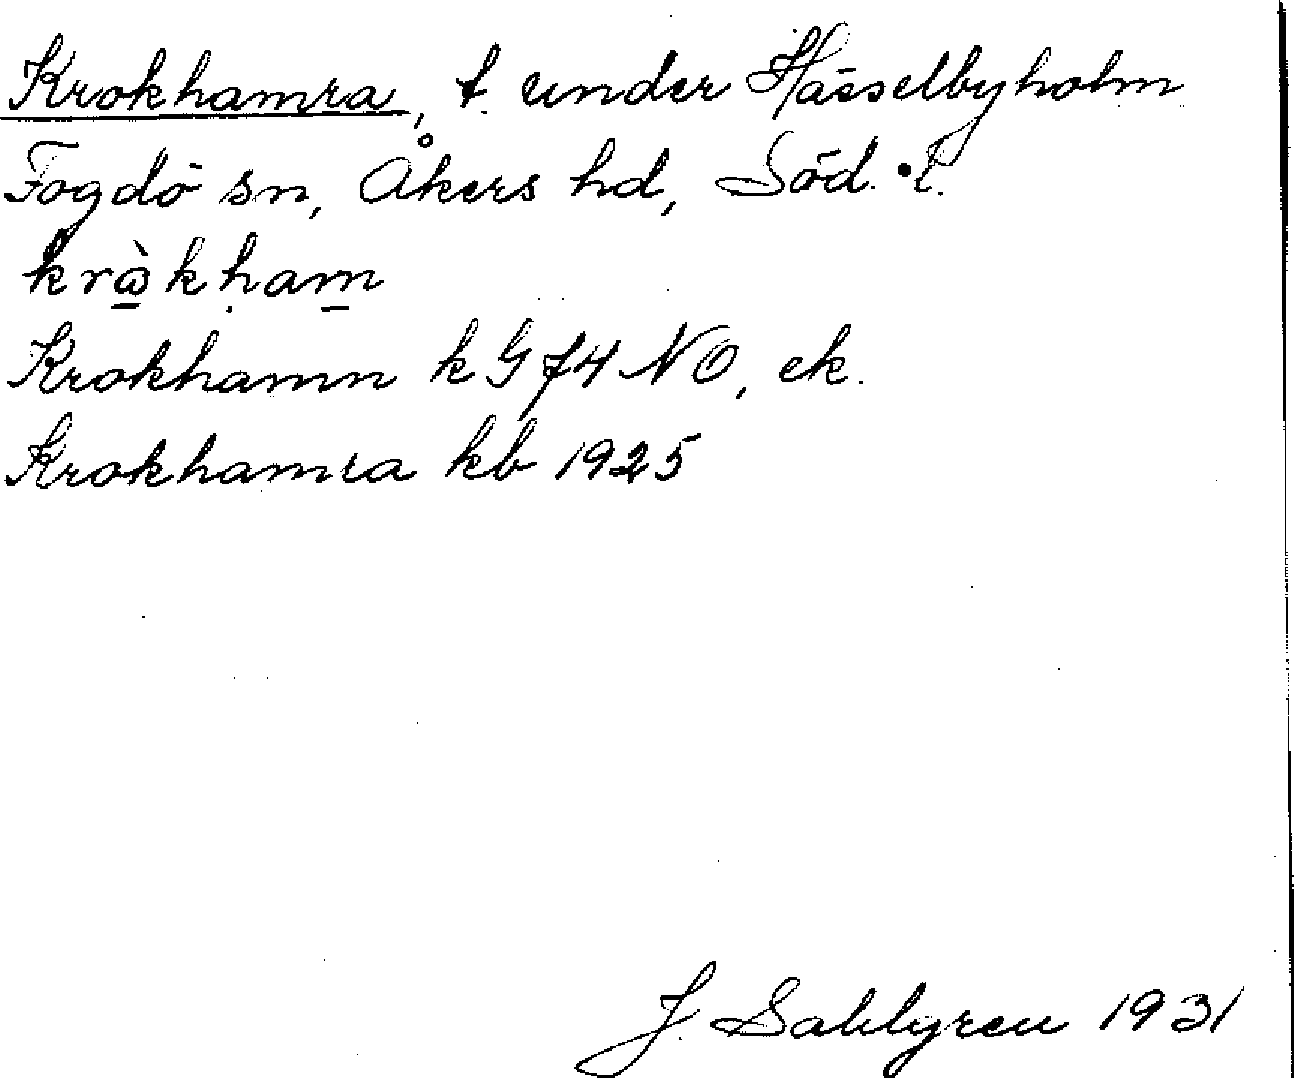 Krokhamra, t. under Hässelbyholm
Fogdö sn, Åkers hd, Söd. l.
kròkham
Krokhamn k G 74 NO, ek.
Krokhamra kb 1925
J. Sahlgren 1931